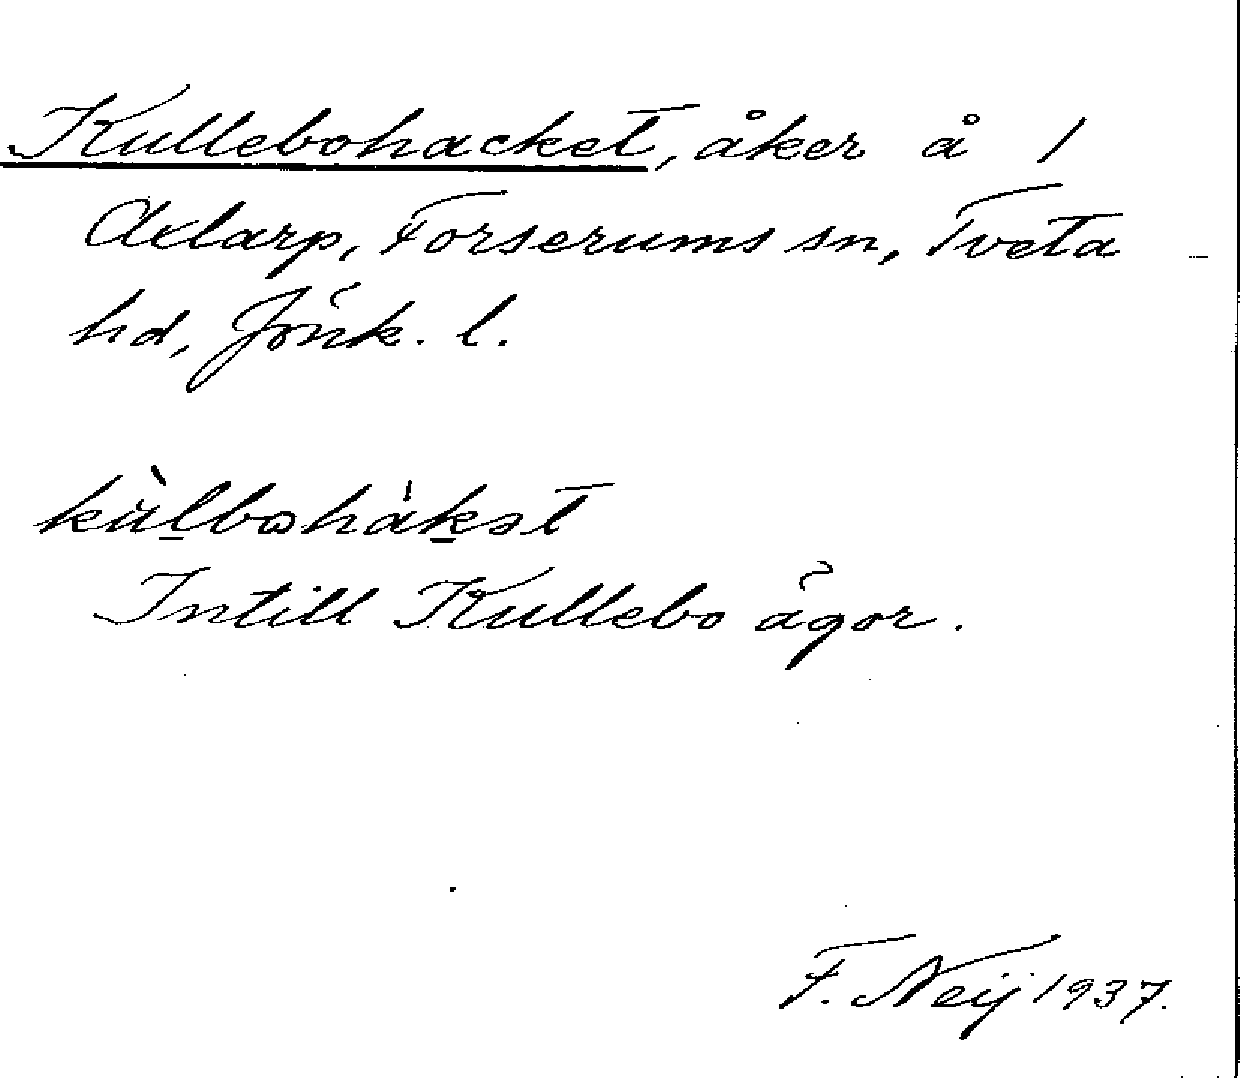 Kullebohacket, åker å 1
Axlarp, Forserums sn, Tveta
hd, Jönk. l.
kùl̲bωhák̲ət
Intill Kullebo ägor.
F. Neij 1937.